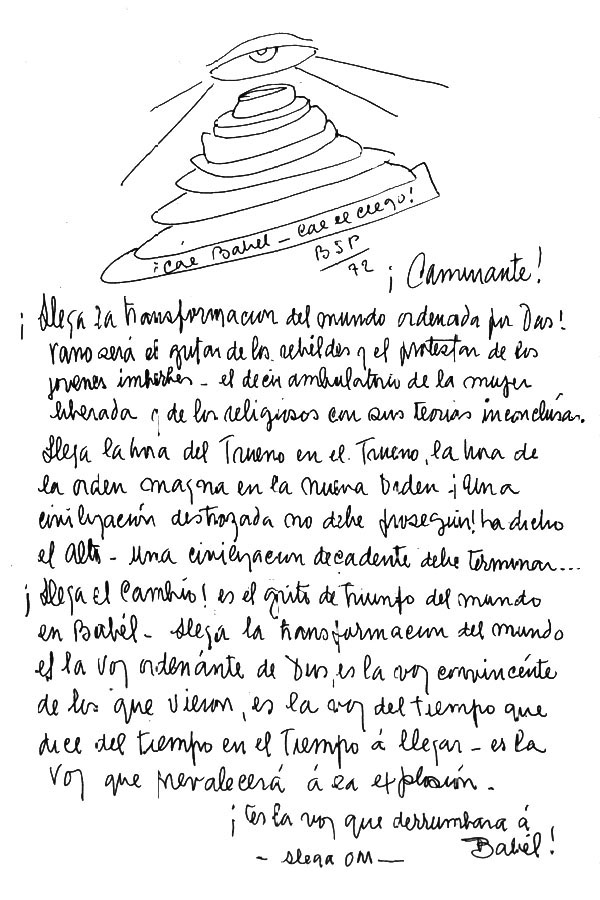 ¡Cae Babel - Cae el ciego!
BSP
72
¡Caminante!
¡Llega la transformacion del mundo ordenada por Dios!
vano será el gritar de los rebeldes y el protestar de los
jovenes imberbes - el decir ambulatorio de la mujer
liberada y de los religiosos con sus teorias inconclusas.
Llega la hora del Trueno en el Trueno, la hora de
la orden magna en la nueva Orden - ¡Una
civilización destrozada no debe proseguir! ha dicho
el Alto - una civilizacion decadente debe terminar...
¡Llega el Cambio! es el grito de triunfo del mundo
en Babél - Llega la transformacion del mundo
es la voz ordenánte de Dios, es la voz convincénte
de los que vieron, es la voz del tiempo que
dice del tiempo en el Tiempo á llegar - es la
voz que prevalecerá á la explosión.
¡Es la voz que derrumbara á
Babél!
- llega OM -